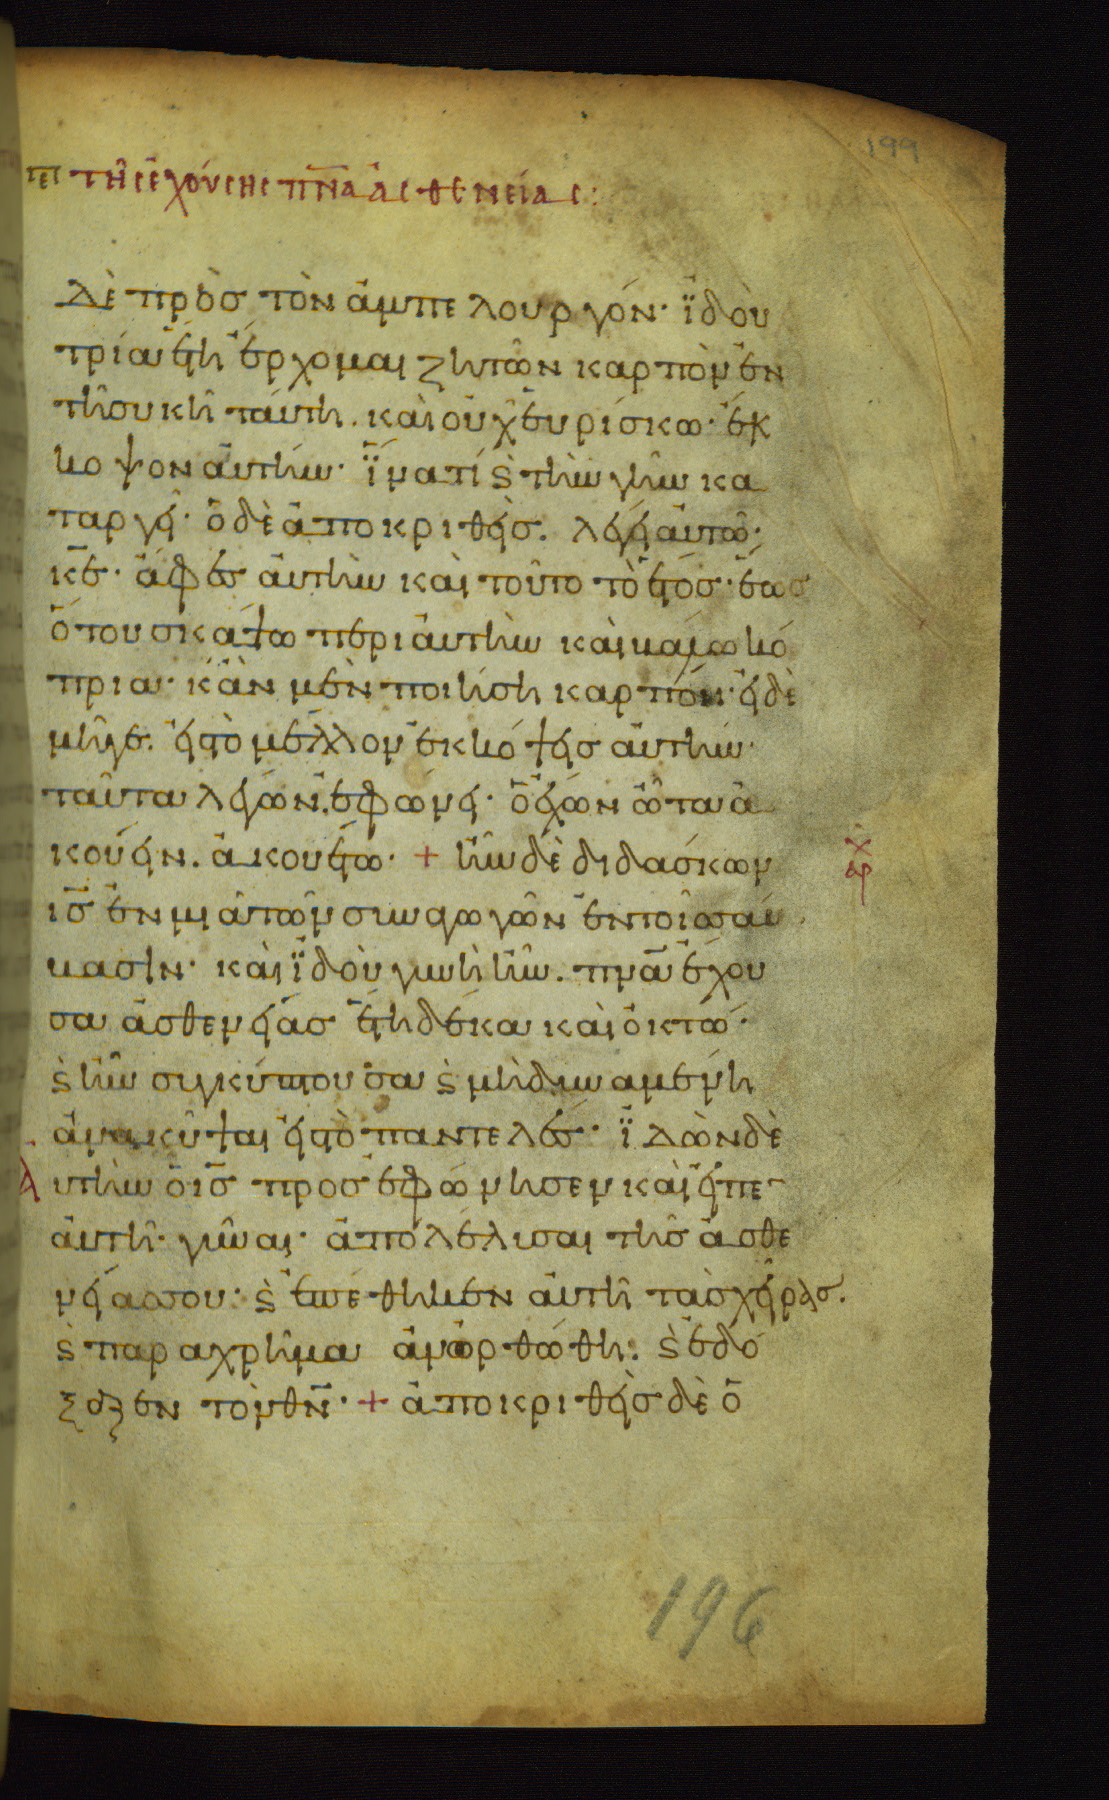 199
πε τῆς ἐχούσης πν̅α ἀσθενείας:
δὲ πρὸσ τὸν ἀμπελουργόν· ϊδοὺ
τρία ἔτη ἔρχομαι ζητῶν καρπὸν ἐν
τῆ συκῆ ταύτη. καὶ οὐχ εὑρίσκω· ἔκ
κοψον αὐτήν· ϊνατί ϗ τὴν γῆν κα
ταργεῖ· ὁ δὲ ἀποκριθεὶσ. λέγει αὐτῶ·
κ̅ε· ἄφεσ αὐτὴν καὶ τοῦτο τὸ ἔτοσ· ἕωσ
ὅτου σκάψω περὶ αὐτὴν καὶ βάλω κό
πρια· κἂν μὲν ποιήση καρπόν· εἰ δὲ
μήγε. εἰς τὸ μέλλον ἐκκόψεισ αὐτήν·
ταῦτα λέγων. ἐφώνει· ὁ ἔχων ὦτα ἀ
κούειν. ἀκουέτω· + ἦν δὲ διδάσκων
ι̅σ ἐν μιᾶ τῶν συναγωγῶν ἐν τοῖσ σάβ
βασιν· καὶ ϊδοὺ γυνὴ ἦν. πν̅α ἔχου
σα ἀσθενείασ ἔτη δέκα καὶ ὀκτώ·
ϗ ἦν συγκύπτουσα ϗ μὴ δυναμένη
ἀνακύψαι εἰς τὸ παντελέσ· ϊδὼν δὲ
αὐτὴν ὁ ι̅σ προσεφώνησεν καὶ εἶπε
αὐτῆ· γύναι· ἀπολέλυσαι τῆσ ἀσθε
νείασ σου· ϗ ἐπέθηκεν αὐτῆ τὰσ χεῖρασ.
ϗ παραχρῆμα ἀνωρθώθη· ϗ ἐδό
ξαζεν τὸν θ̅ν· + ἀποκριθεὶσ δὲ ὁ
196